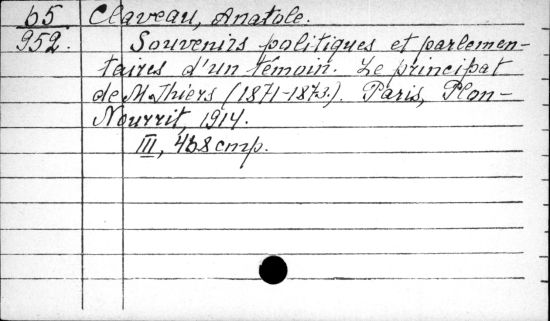 65 Claveau, Anatole.
952. Souvenirs politiques et parlemen-
taires d'un témoin. Le principat
de M. Thiers (1871-1873.). Paris, Plon-
Nourrit, 1914.
III, 458 стр.